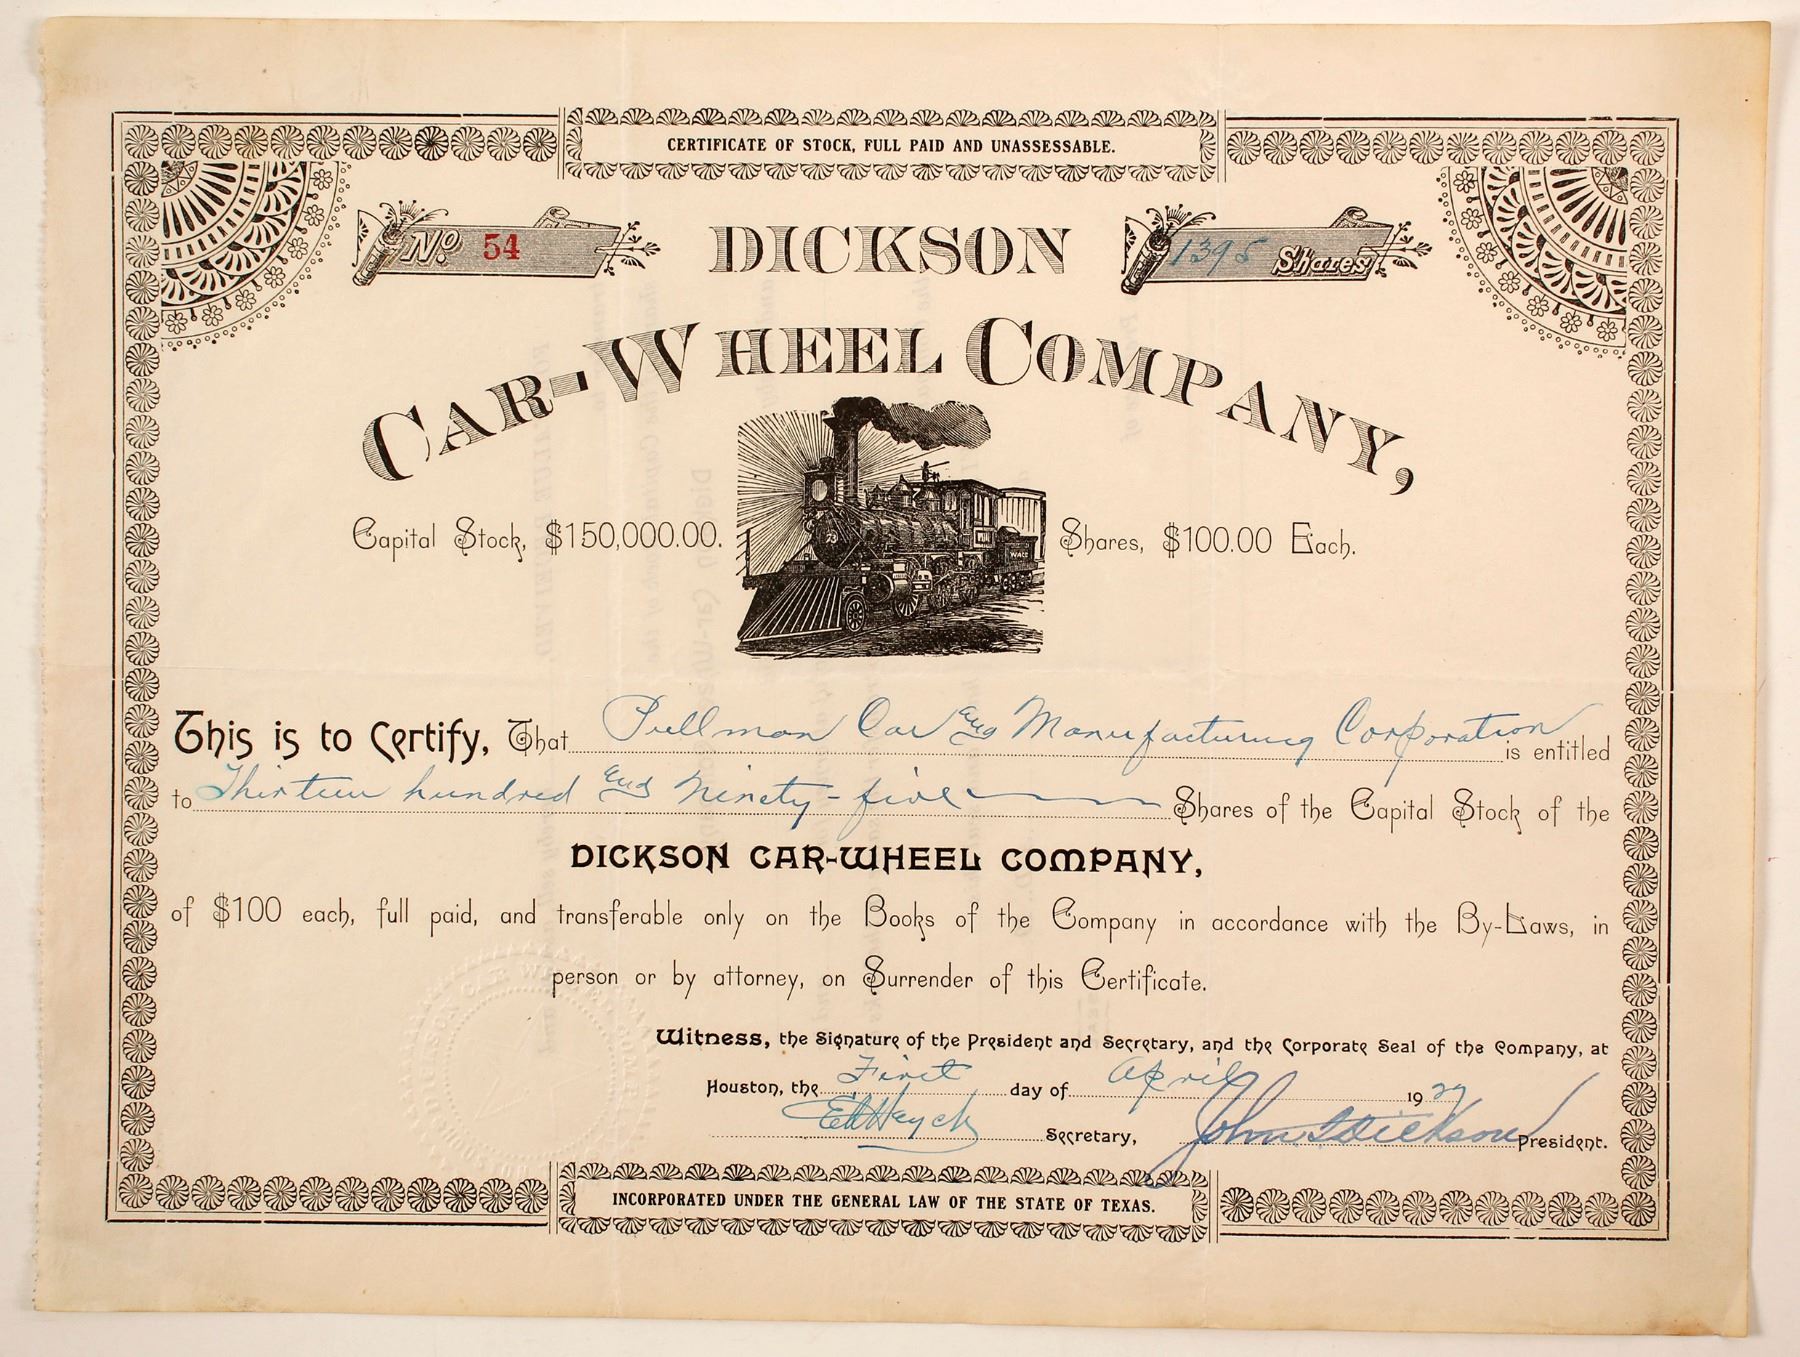 CERTIFICATE OF STOCK, FULL PAID AND UNASSESSABLE.
No. 54
DICKSON
1395 Shares
CAR-WHEEL COMPANY,
Capital Stock, $150,000.00.
Shares, $100.00 Each.
This is to Certify, That Pullman Car and Manufacturing Corporation is entitled
to Thirteen hundred and Ninety-five Shares of the Capital Stock of the
DICKSON CAR-WHEEL COMPANY,
of $100 each, full paid, and transferable only on the Books of the Company in accordance with the By-Laws, in
person or by attorney, on Surrender of this Certificate.
Witness, the Signature of the President and Secretary, and the Corporate Seal of the Company, at
Houston, the First day of April 1927
Secretary, John Dickson President.
INCORPORATED UNDER THE GENERAL LAW OF THE STATE OF TEXAS.